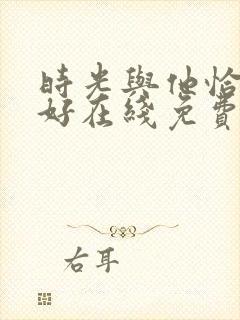 時光與他恰
好在綫免費
右耳